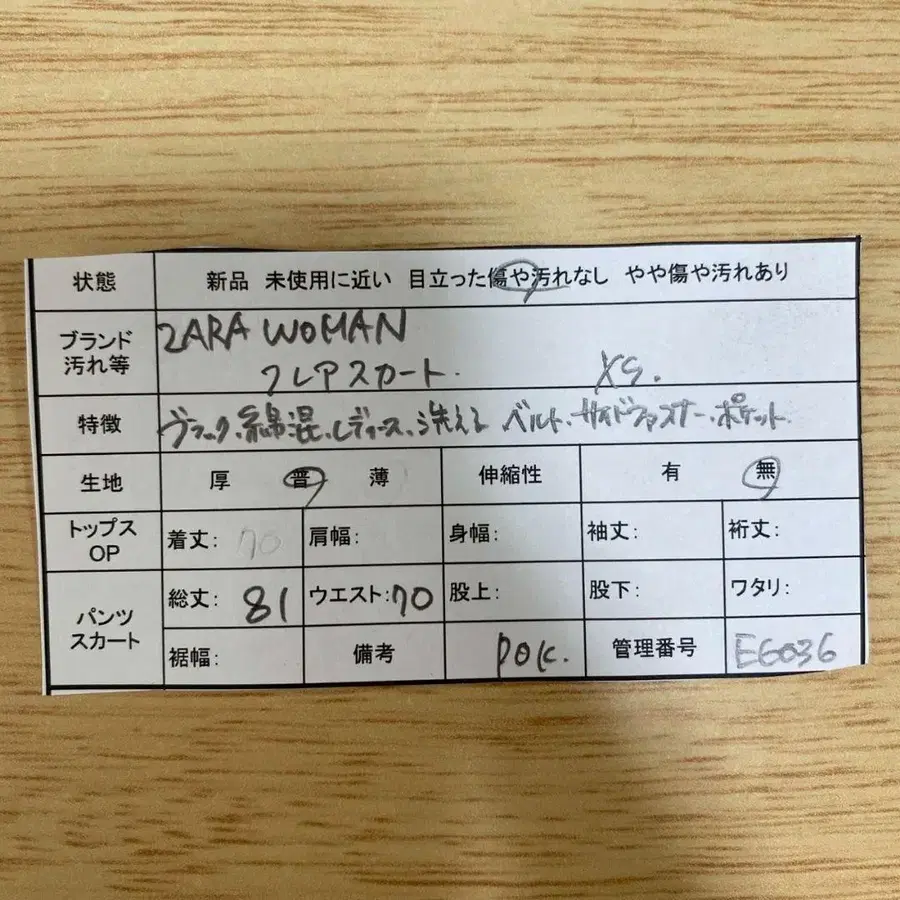 状態 新品 未使用に近い 目立った傷や汚れなし やや傷や汚れあり
ブランド 汚れ等 ZARA WOMAN
フレアスカート. XS.
特徴 ブラック、綿混、レディース、洗える ベルト、サイドファスナー、ポケット
生地 厚 普 薄 伸縮性 有 無
トップス OP 着丈: 70 肩幅: 身幅: 袖丈: 裄丈:
パンツ スカート 総丈: 81 ウエスト: 70 股上: 股下: ワタリ:
裾幅: 備考 POK. 管理番号 E6036